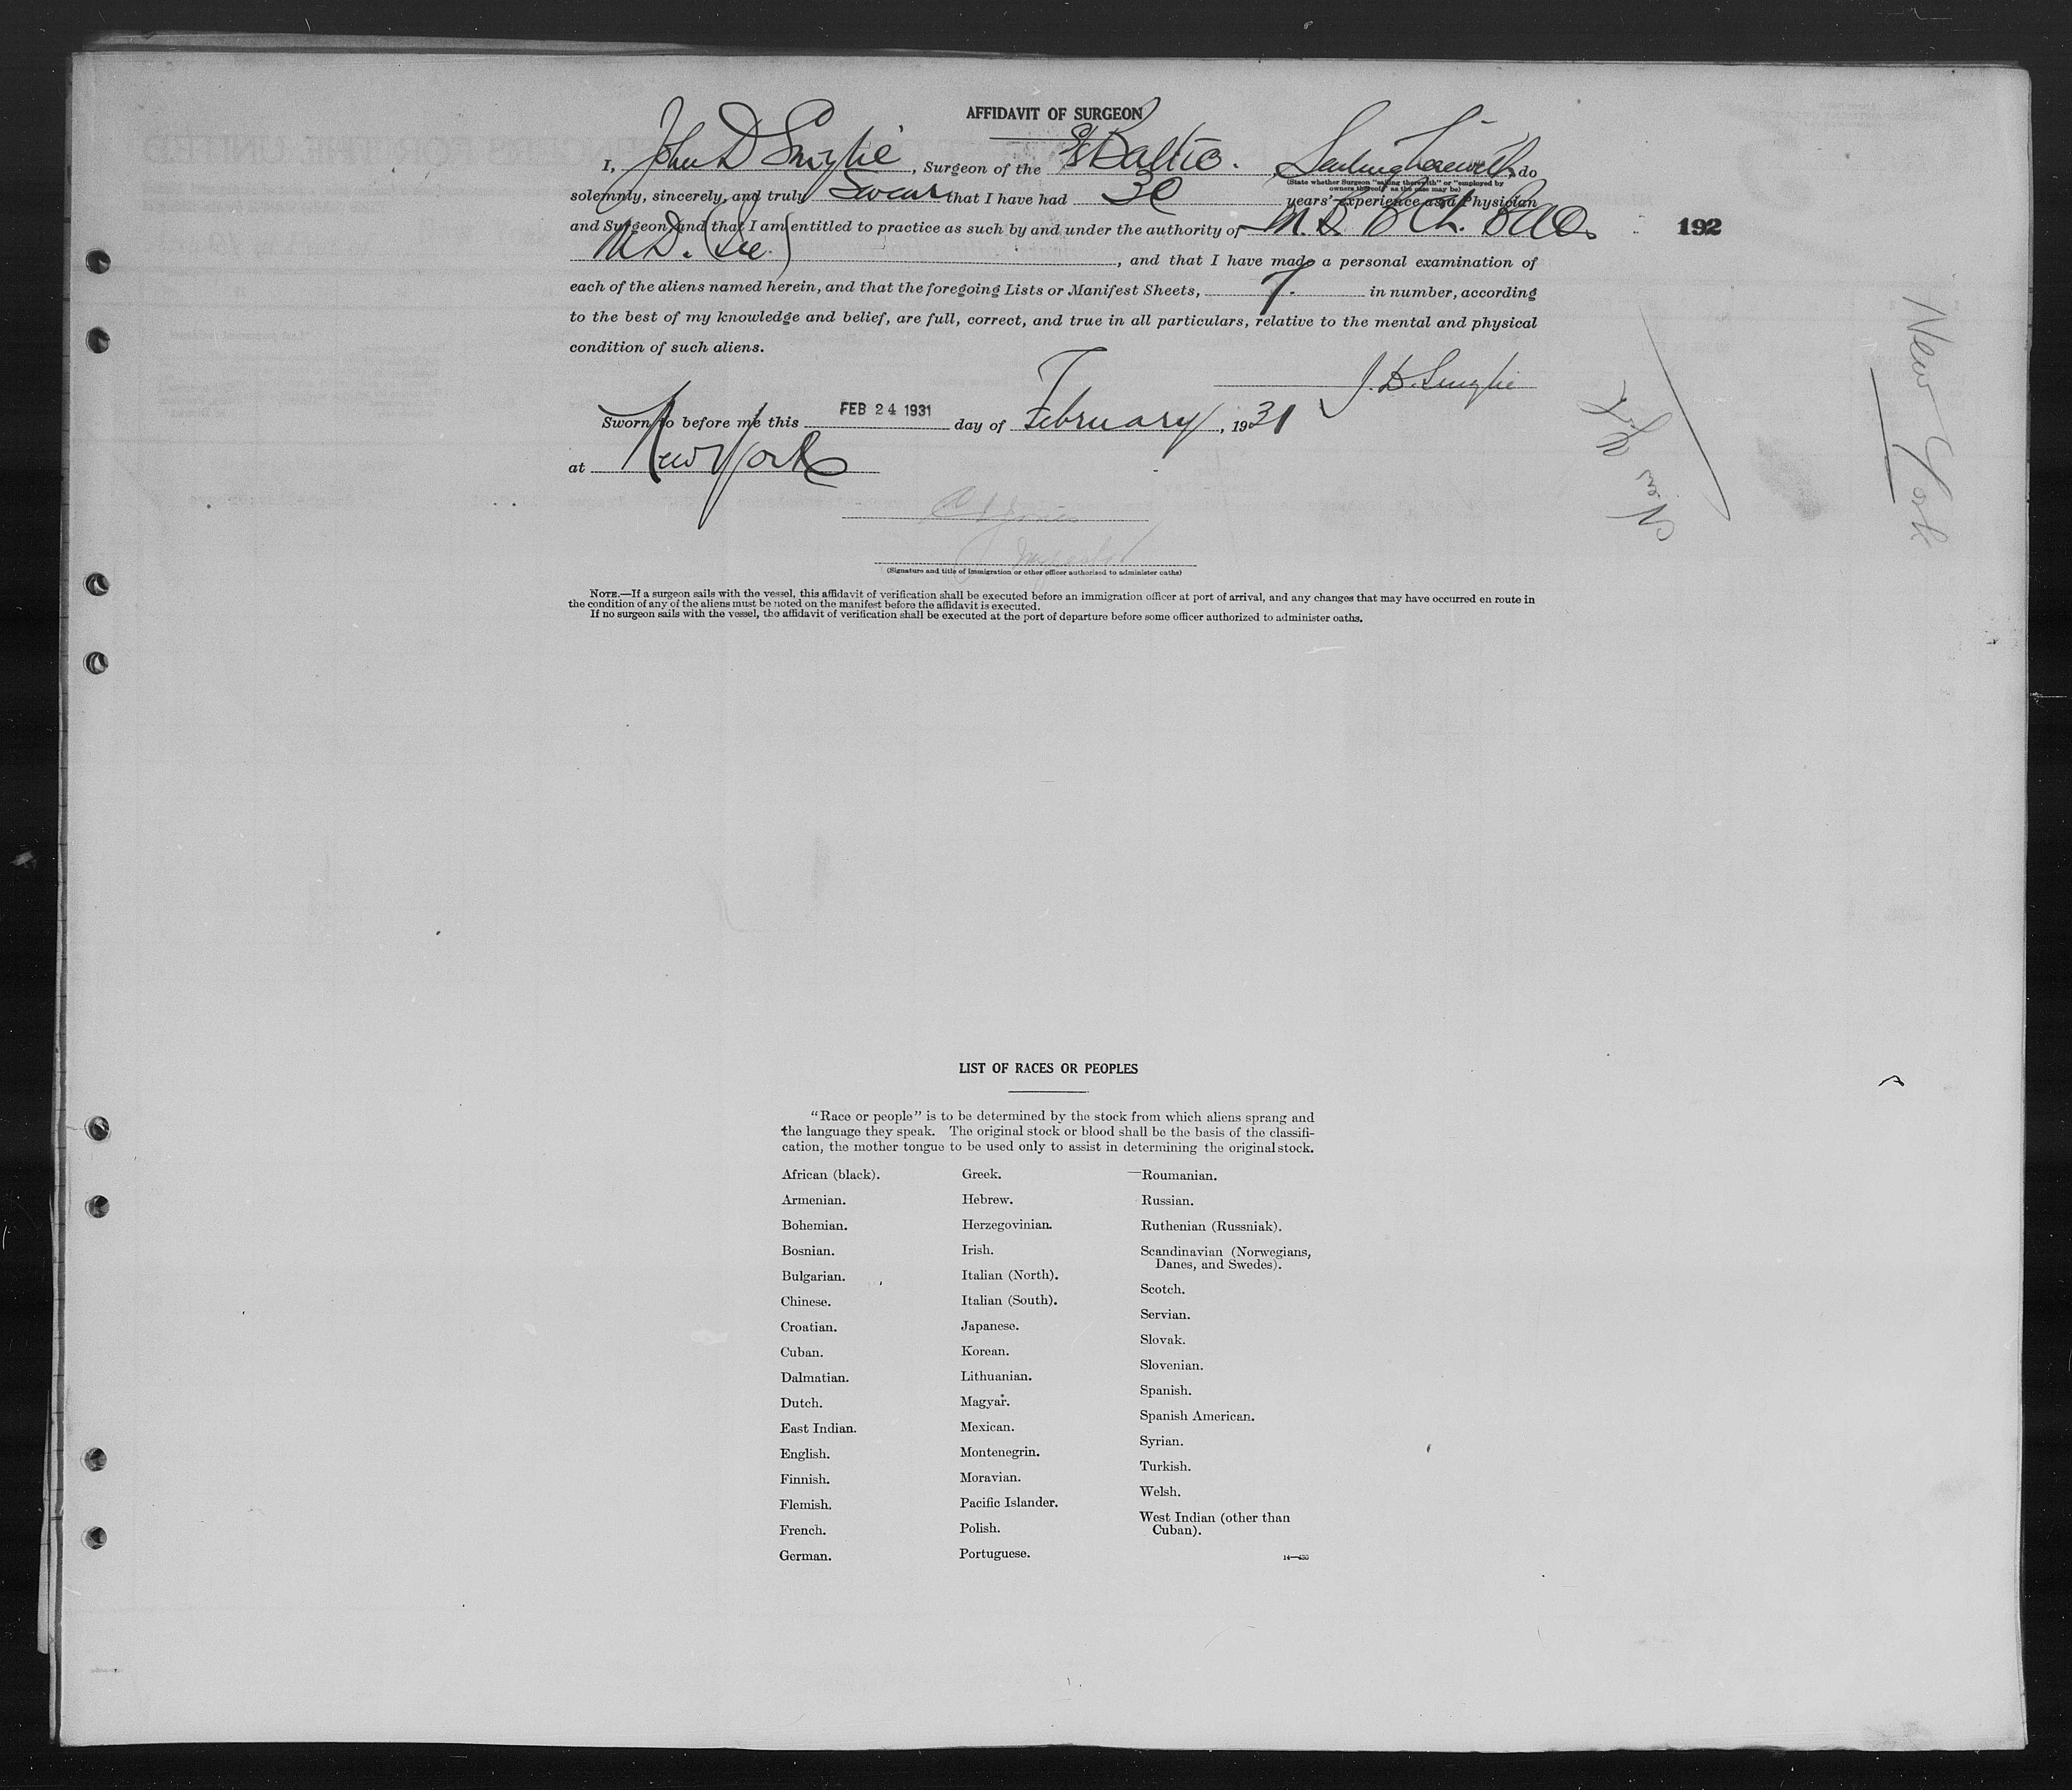 AFFIDAVIT OF SURGEON
I, John D Smylie, Surgeon of the SS Baltic., Sailing therewith, do
(State whether Surgeon "sailing therewith" or "employed by owners thereof," as the case may be)
solemnly, sincerely, and truly Swear that I have had 30 years' experience as a Physician
and Surgeon, and that I am entitled to practice as such by and under the authority of M.B. B.Ch. BAO.
M.D., and that I have made a personal examination of
each of the aliens named herein, and that the foregoing Lists or Manifest Sheets, 7. in number, according
to the best of my knowledge and belief, are full, correct, and true in all particulars, relative to the mental and physical
condition of such aliens.
J. D. Smylie
Sworn to before me this FEB 24 1931 day of February, 1931
at New York
Inspector
(Signature and title of immigration or other officer authorized to administer oaths)
NOTE.—If a surgeon sails with the vessel, this affidavit of verification shall be executed before an immigration officer at port of arrival, and any changes that may have occurred en route in
the condition of any of the aliens must be noted on the manifest before the affidavit is executed.
If no surgeon sails with the vessel, the affidavit of verification shall be executed at the port of departure before some officer authorized to administer oaths.
192
New York
LIST OF RACES OR PEOPLES
"Race or people" is to be determined by the stock from which aliens sprang and
the language they speak. The original stock or blood shall be the basis of the classifi-
cation, the mother tongue to be used only to assist in determining the original stock.
African (black).
Armenian.
Bohemian.
Bosnian.
Bulgarian.
Chinese.
Croatian.
Cuban.
Dalmatian.
Dutch.
East Indian.
English.
Finnish.
Flemish.
French.
German.
Greek.
Hebrew.
Herzegovinian.
Irish.
Italian (North).
Italian (South).
Japanese.
Korean.
Lithuanian.
Magyar.
Mexican.
Montenegrin.
Moravian.
Pacific Islander.
Polish.
Portuguese.
Roumanian.
Russian.
Ruthenian (Russniak).
Scandinavian (Norwegians,
Danes, and Swedes).
Scotch.
Servian.
Slovak.
Slovenian.
Spanish.
Spanish American.
Syrian.
Turkish.
Welsh.
West Indian (other than
Cuban).